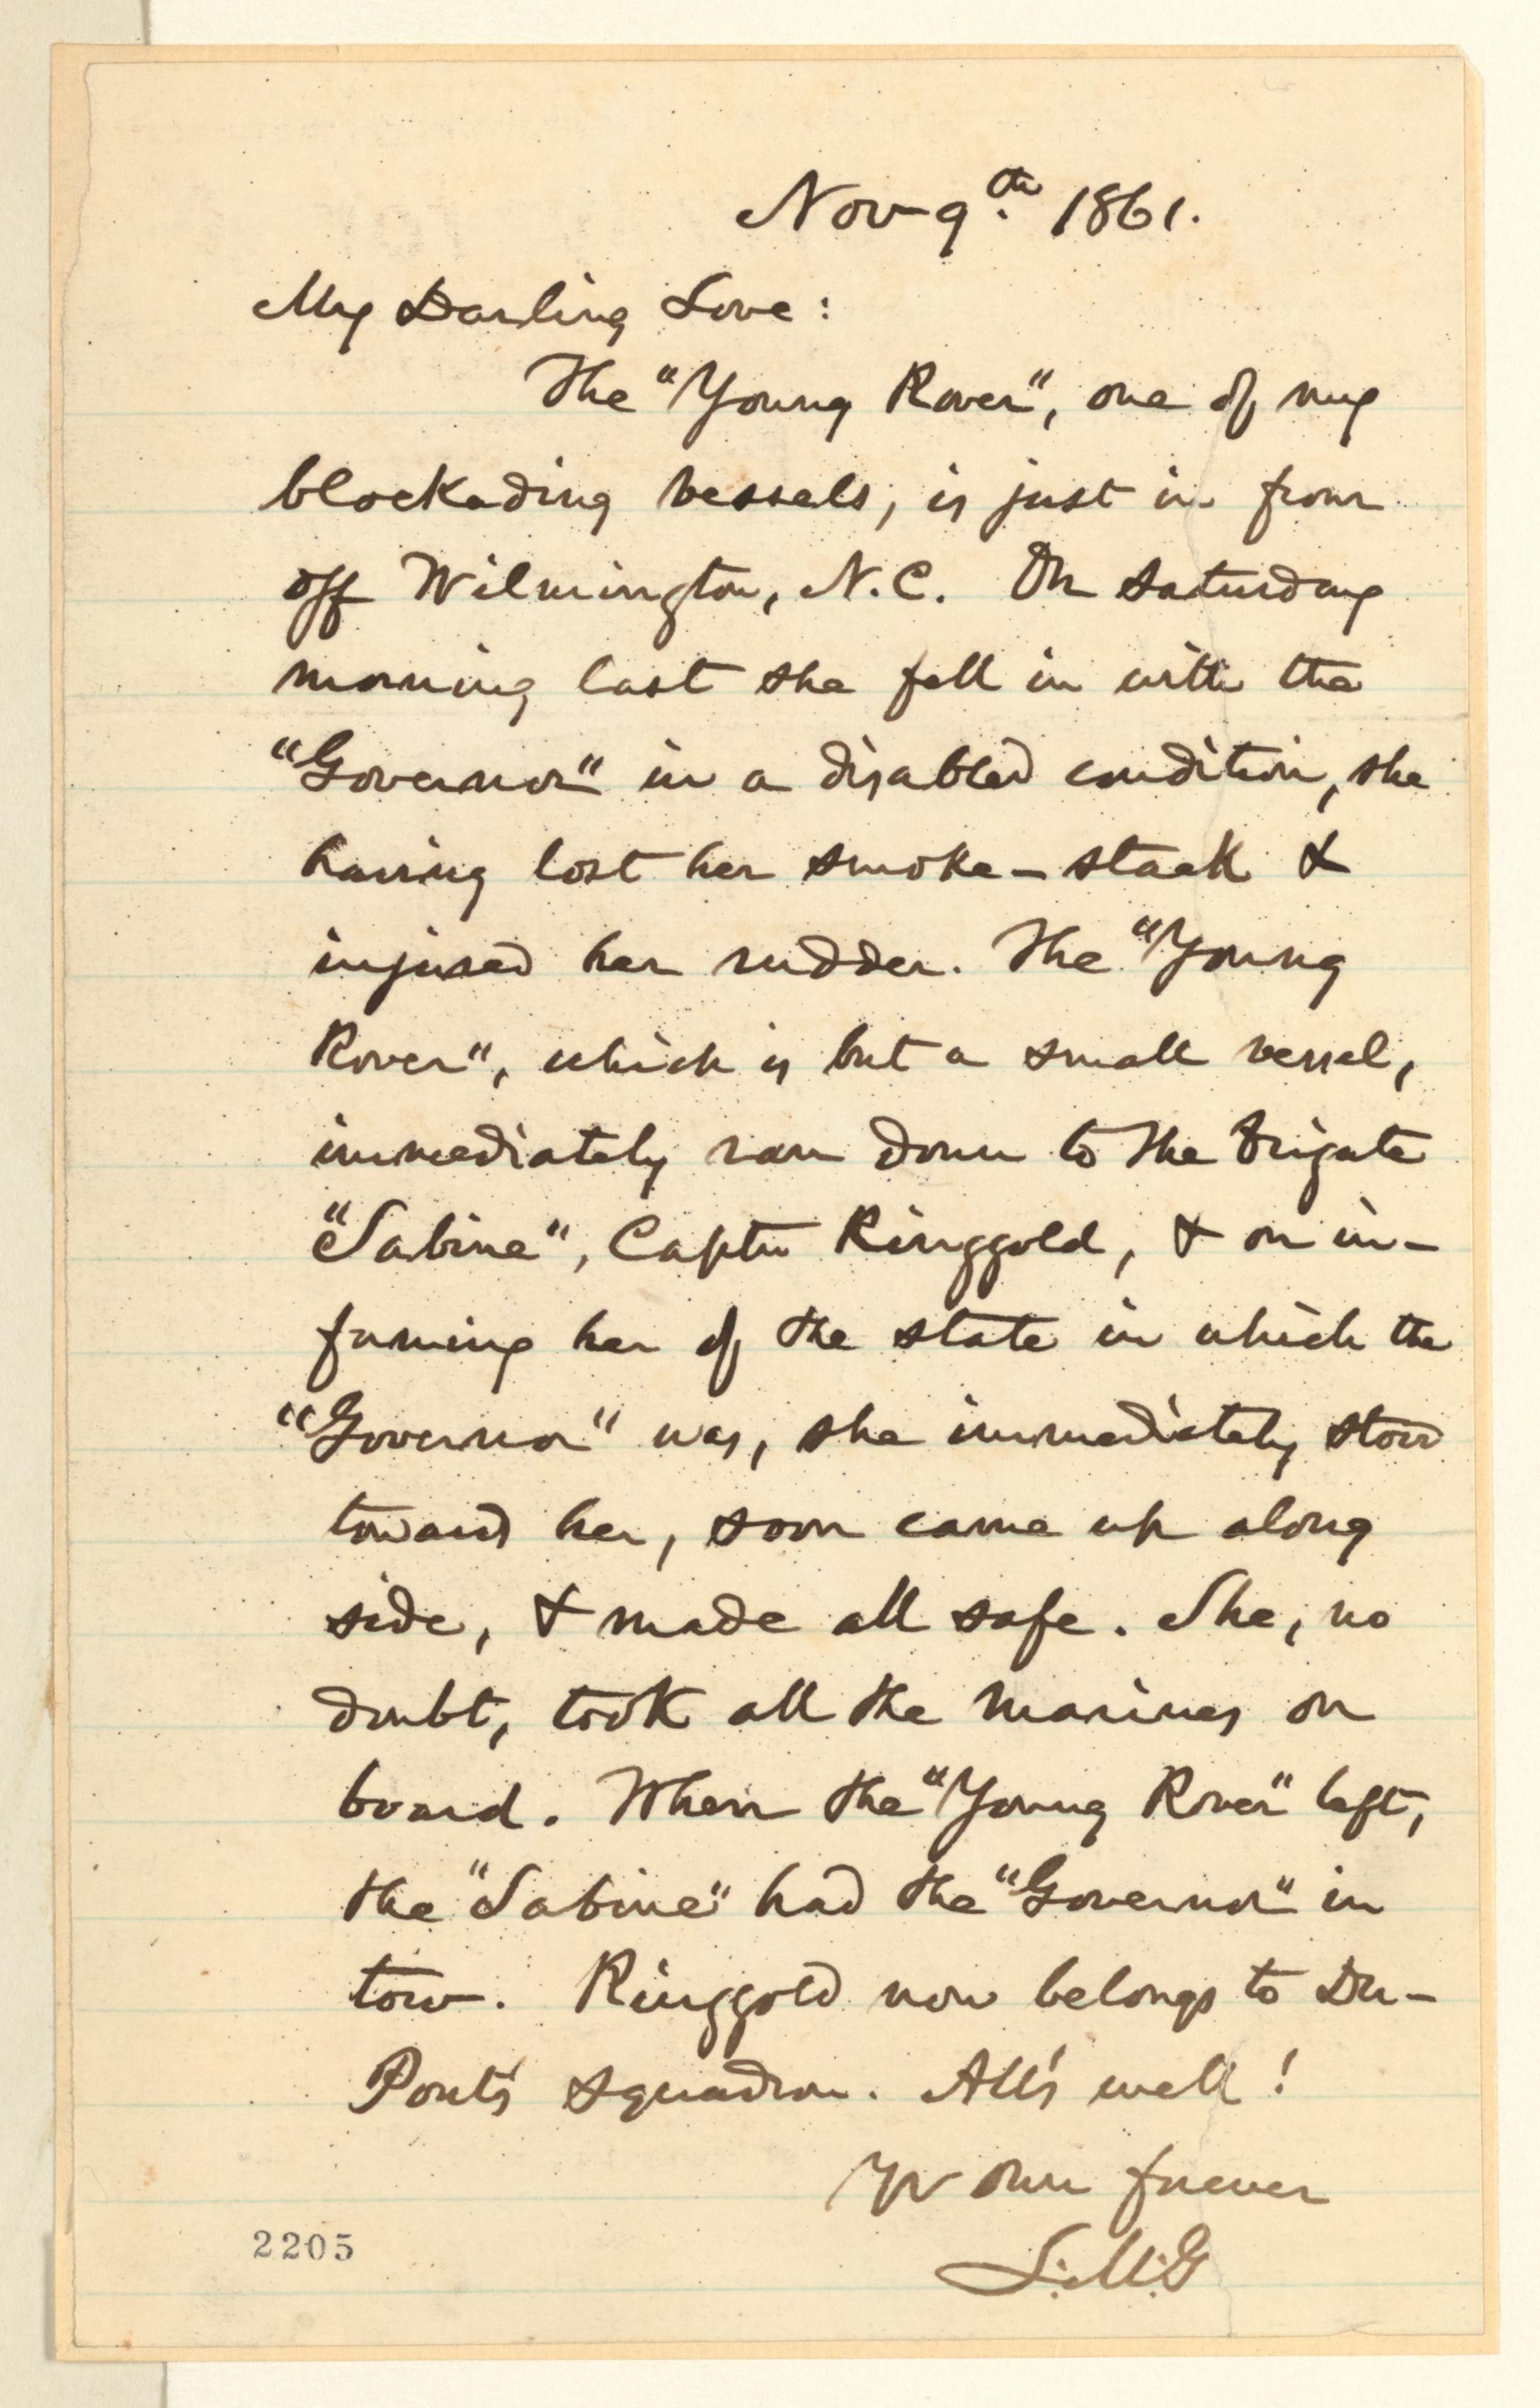 Nov 9th. 1861.
My Darling Love:
The "Young Rover", one of my
blockading vessels, is just in from
off Wilmington, N.C. On Saturday
morning last she fell in with the
"Governor" in a disabled condition, she
having lost her smoke-stack &
injured her rudder. The "Young
Rover", which is but a small vessel,
immediately ran down to the frigate
"Sabine", Captn Ringgold, & on in-
forming her of the state in which the
"Governor" was, she immediately stood
toward her, soon came up along
side, & made all safe. She, no
doubt, took all the marines on
board. When the "Young Rover" left,
the "Sabine" had the "Governor" in
tow. Ringgold now belongs to Du-
Pont's squadron. All's well!
Yr Own forever
L.M.G
2205